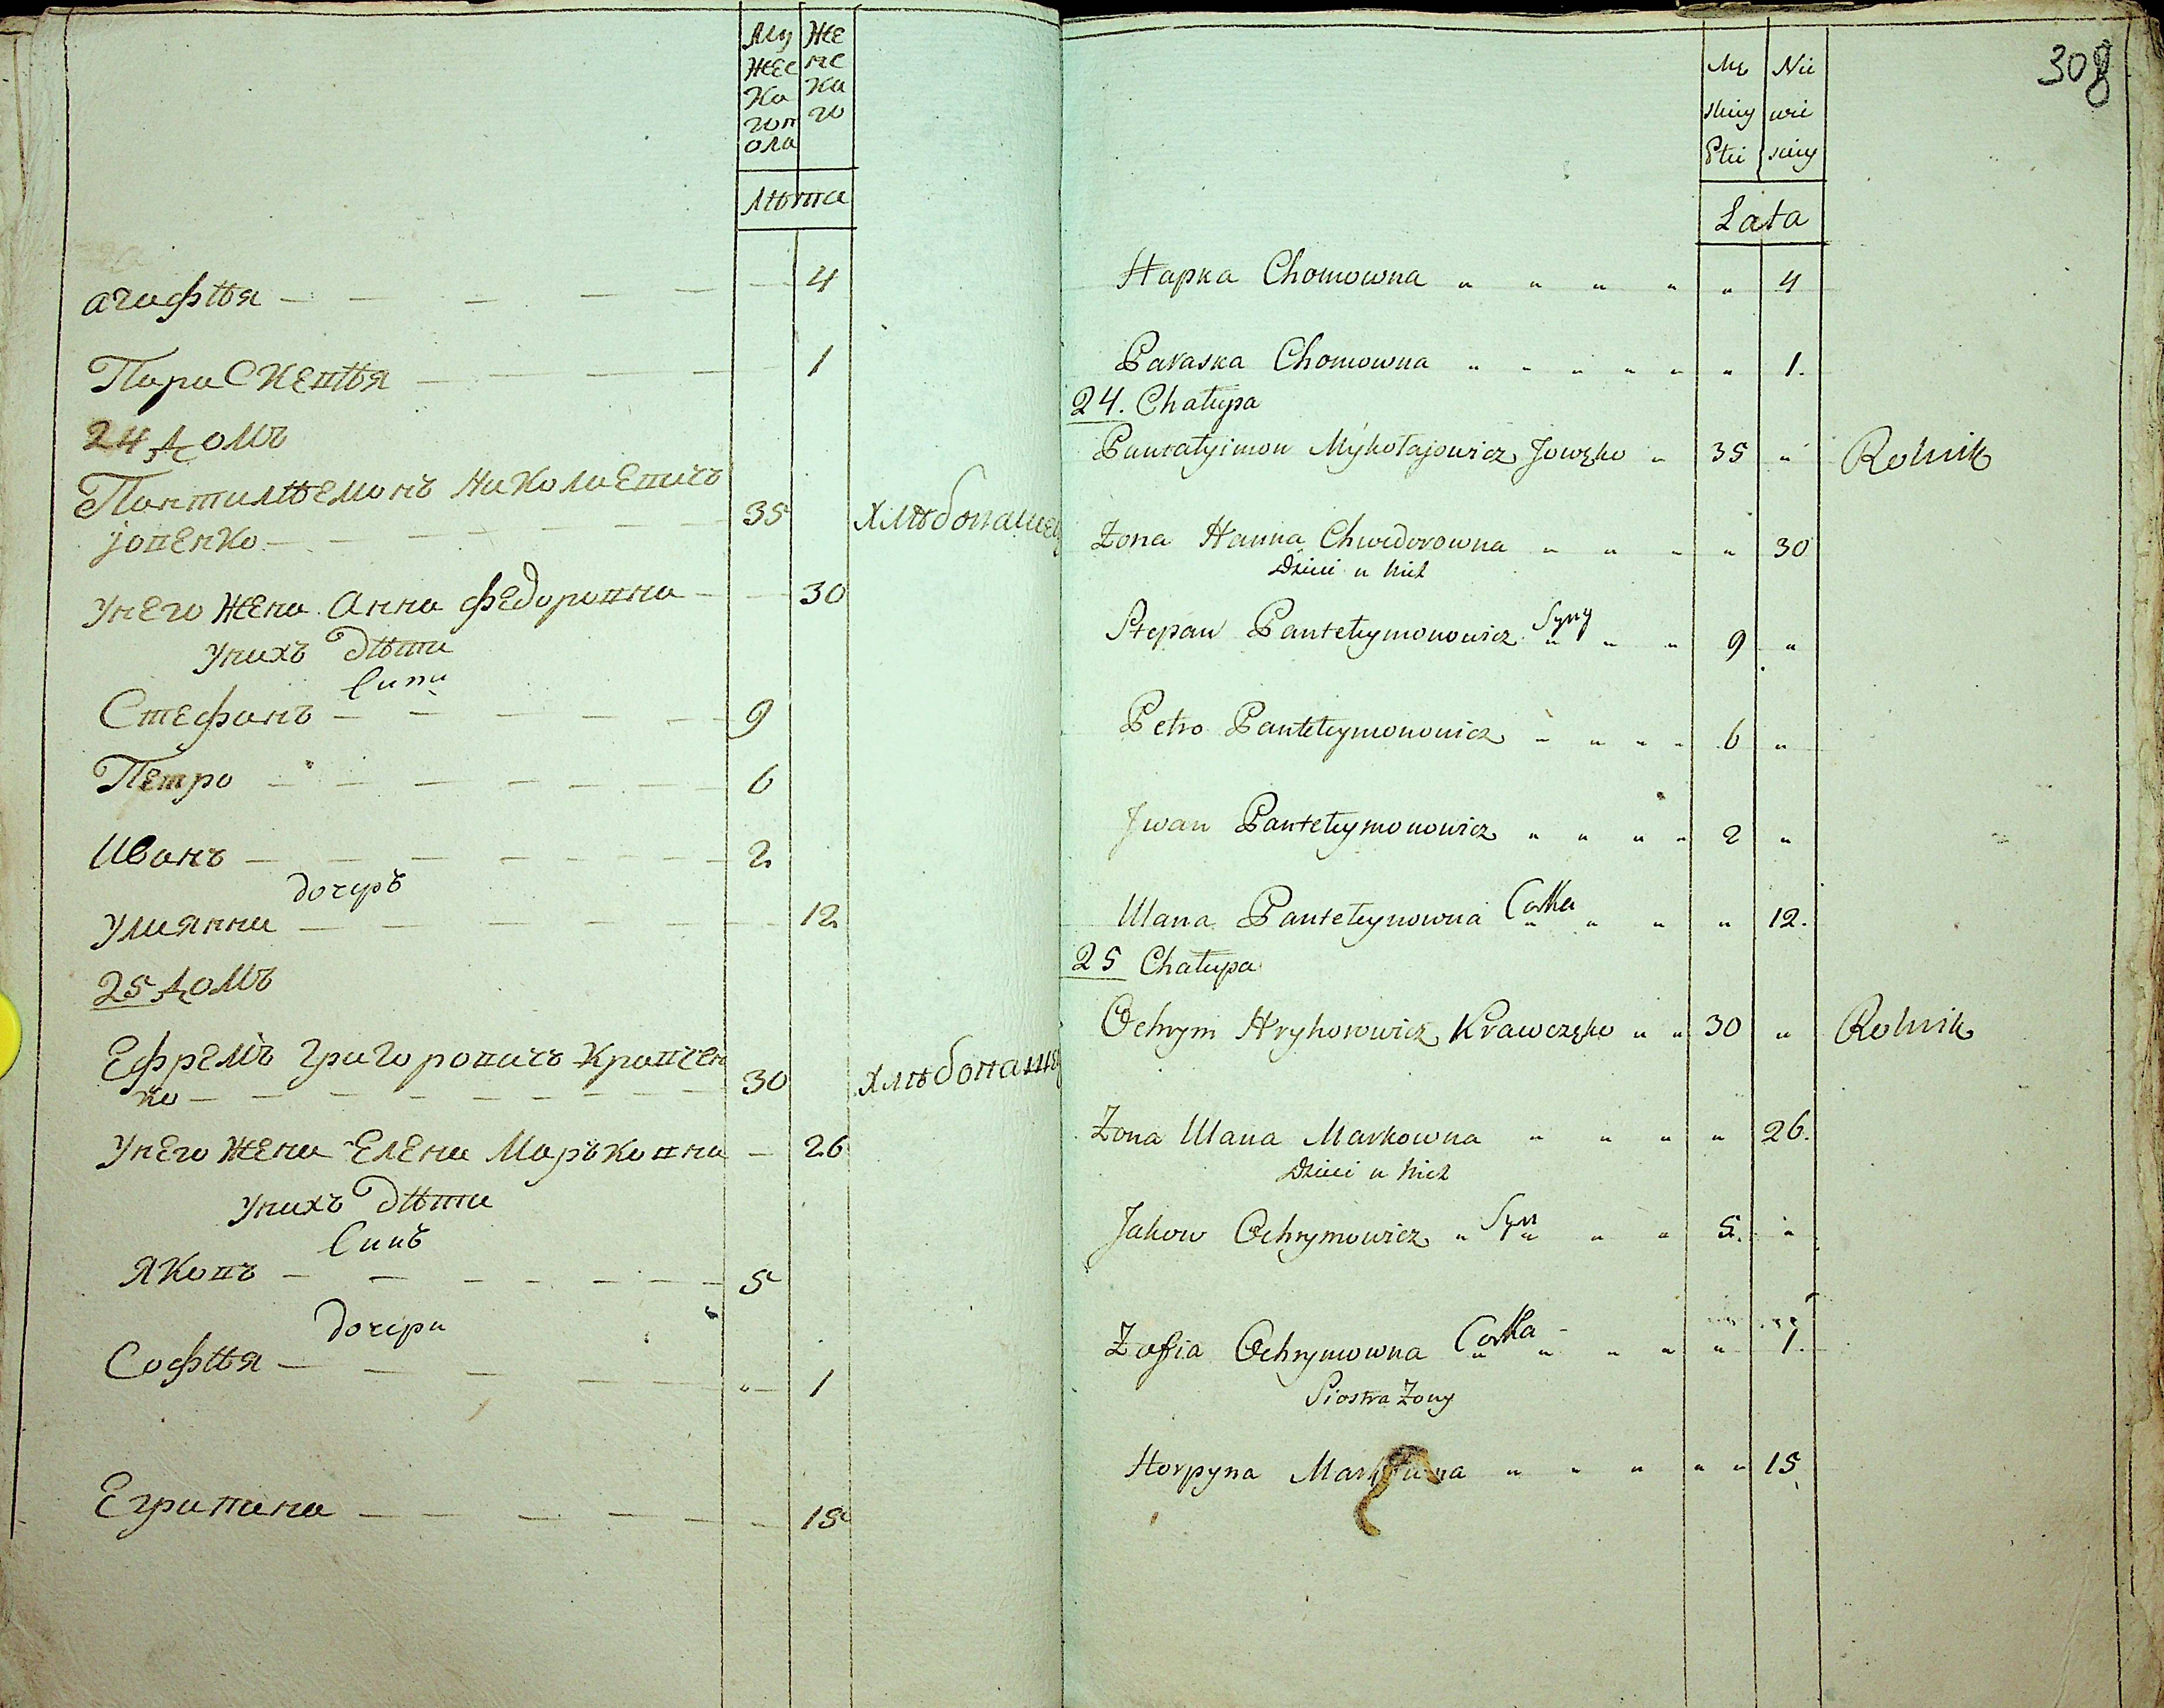 Му
жес
ка
гоп
ола
Же
нс
ка
го
Лѣта
агафѣя 4
ПараСкевѣя 1
24 домъ
Пантилѣемонъ Николаевичъ
јовенко 35 хлѣбопашец
унего жена Анна федоровна 30
унихъ дѣти
Сини
Стефанъ 9
Петро 6
Иванъ 2
дочеръ
улиянна 12
25 домъ
Ефремъ григоровичъ кравчен
ко 30 хлѣбопашец
унего жена Елена Маръковна 26
унихъ дѣти
Синъ
Яковъ 5
дочери
Софѣя 1
Егрипина 15
308
Mę
skiey
Płci
Nie
wie
sciey
Lata
Hapka Chomowna 4
Paraska Chomowna 1.
24. Chałupa
Pantałyimon Mykołajowicz Jowęko 35 Rolnik
Zona Hanna Chwedorowna 30
Dzieci u nich
Syny
Stepan Pantełeymonowicz 9
Petro Pantełeymonowicz 6
Jwan Pantełeymonowicz 2
Ulana Pantełeymowna Corka 12.
25 Chałupa
Ochrym Hryhorowicz Krawczęko 30 Rolnik
Zona Ulana Markowna 26.
Dzieci u nich
Jakow Ochrymowicz Syn 5.
Zofia Ochrymowna Corka 1.
Siostra Zony
Horpyna Markowna 15